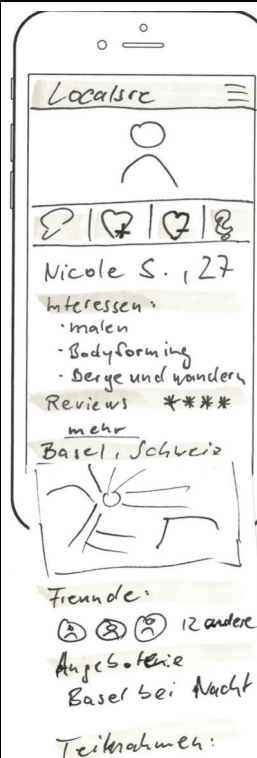 Localsre
Nicole S. , 27
Interessen:
· malen
- Bodyforming
- Berge und wandern
Reviews ****
mehr
Basel, Schweiz
Freunde:
12 andere
Basel bei Nacht
Teilnahmen: